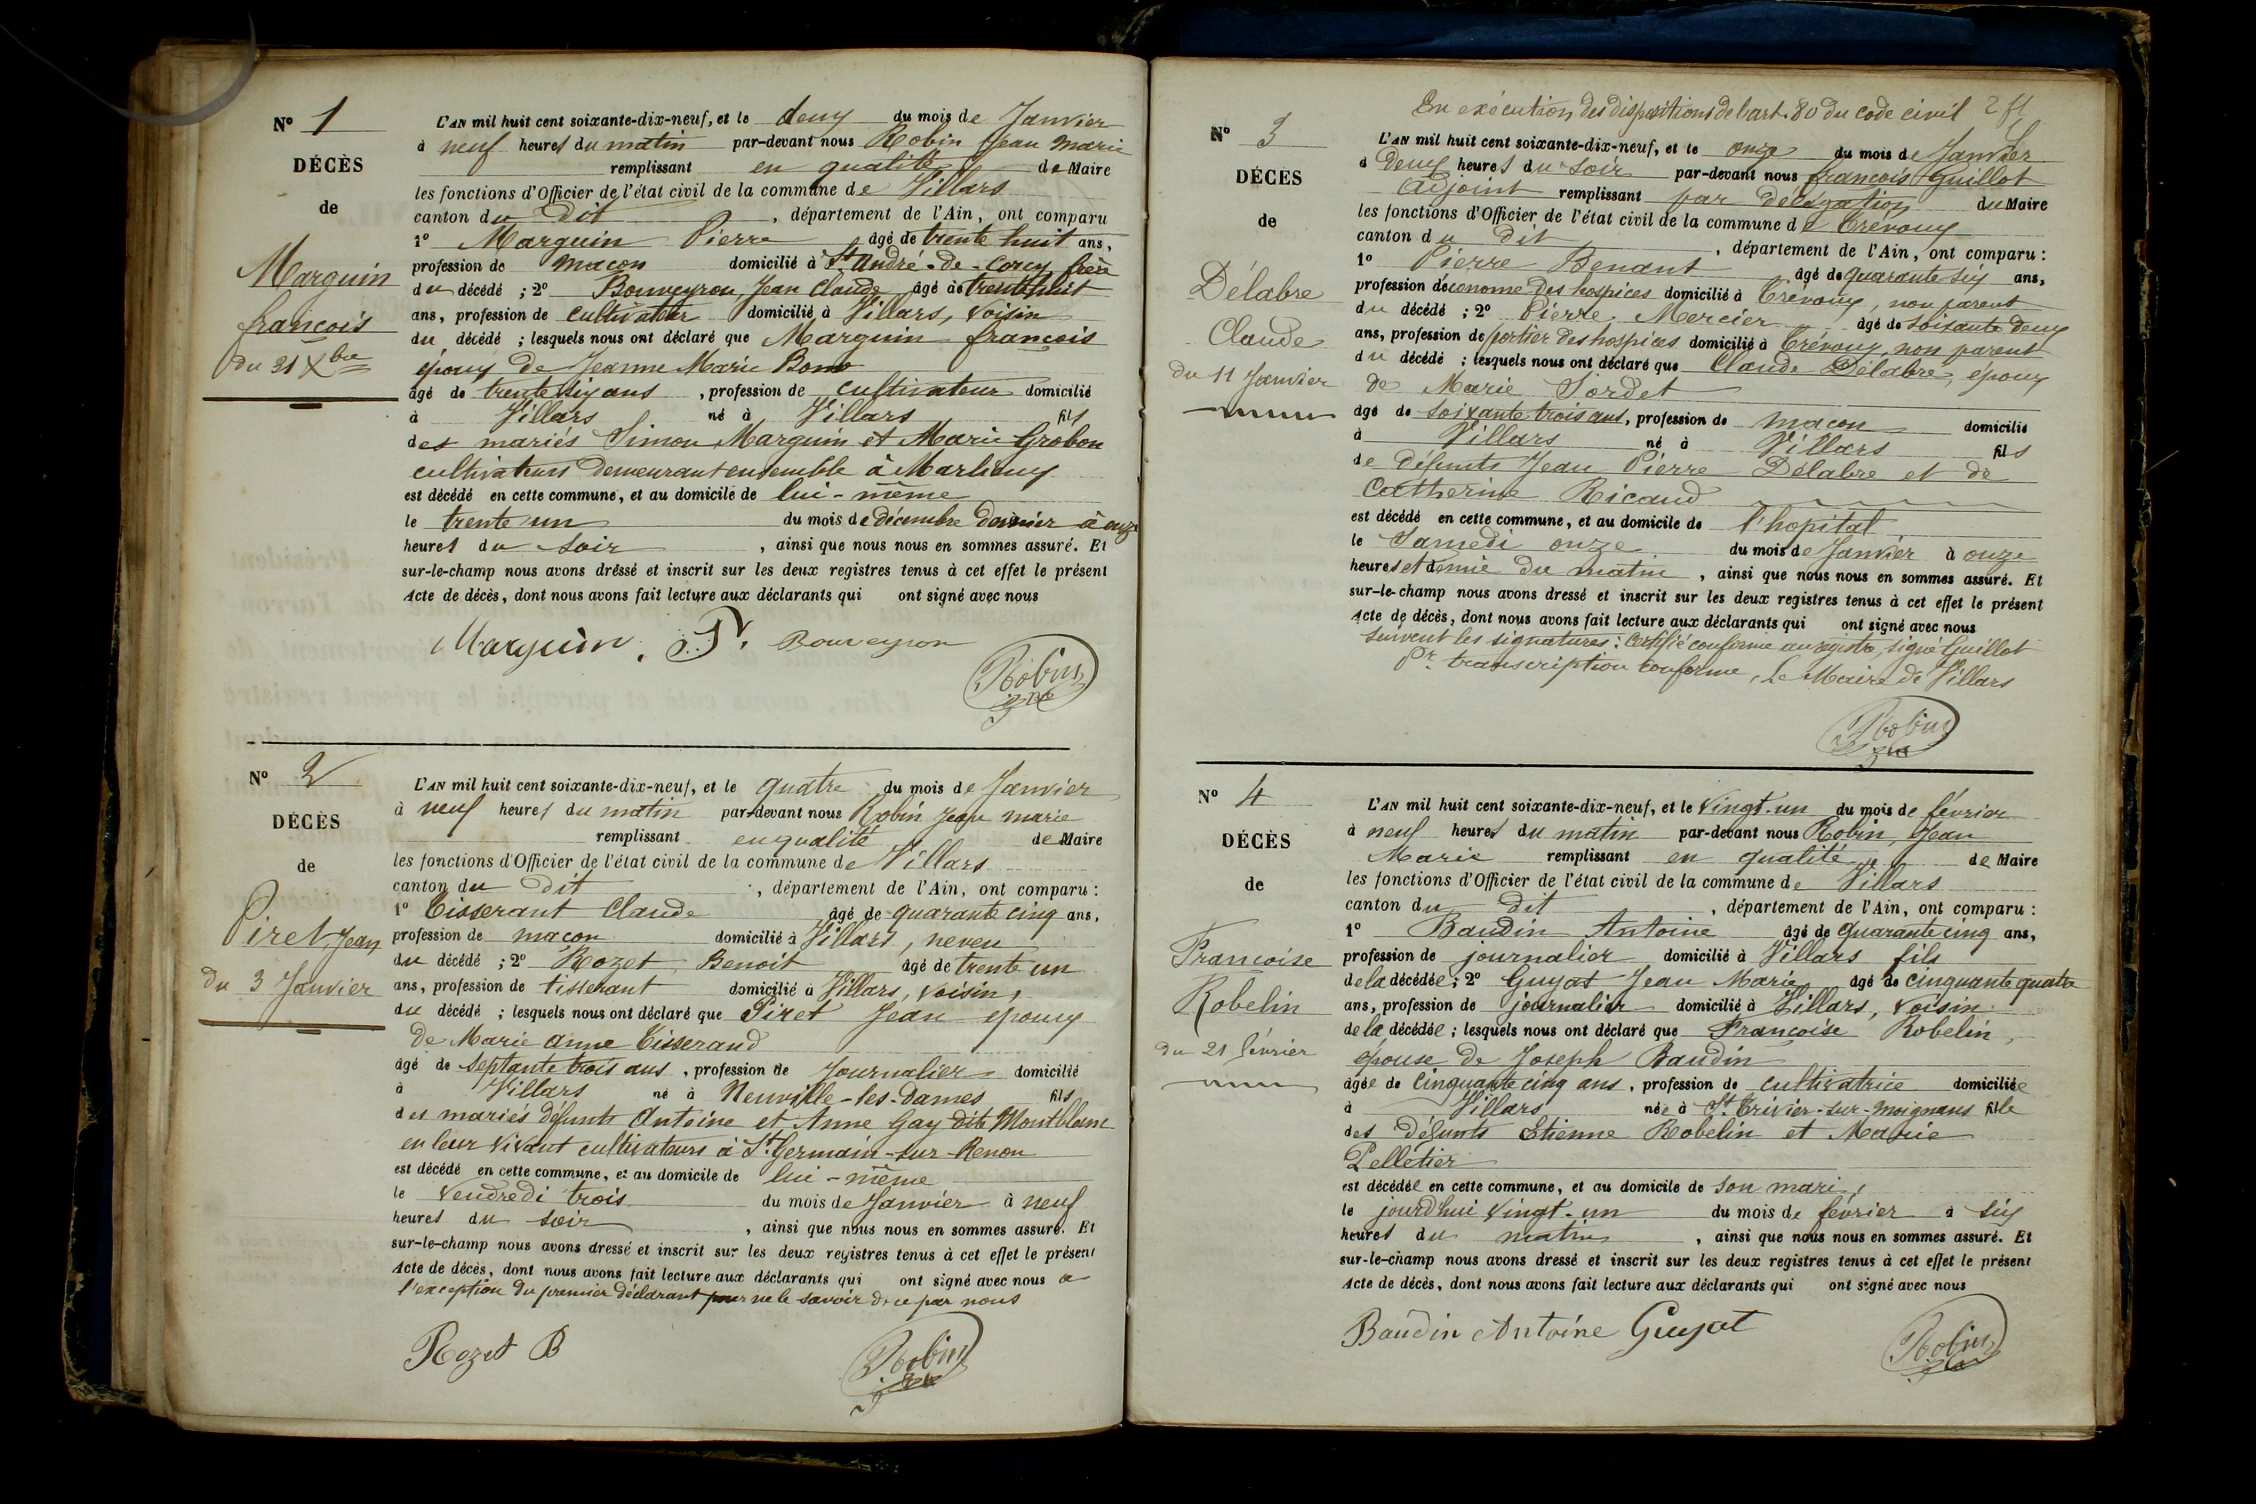 N° 1
DÉCÈS
de
Marguin
françois
du 31 Xbre
L'AN mil huit cent soixante-dix-neuf, et le deux du mois de Janvier
à neuf heures du matin par-devant nous Robin Jean Marie
remplissant en qualité de Maire
les fonctions d'Officier de l'état civil de la commune de Villars
canton du dit, département de l'Ain, ont comparu
1° Marguin Pierre âgé de trente huit ans,
profession de maçon domicilié à St André-de-Corcy frère
du décédé ; 2° Bouveyron, Jean Claude âgé de trente huit
ans, profession de cultivateur domicilié à Villars, voisin
du décédé ; lesquels nous ont déclaré que Marguin françois
époux de Jeanne Marie Bono
âgé de trente six ans, profession de cultivateur domicilié
à Villars né à Villars fils
des mariés Simon Marguin et Marie Grobon
cultivateurs demeurant ensemble à Marlieux
est décédé en cette commune, et au domicile de lui-même
le trente un du mois de décembre dernier à onze
heures du soir, ainsi que nous nous en sommes assuré. Et
sur-le-champ nous avons dressé et inscrit sur les deux registres tenus à cet effet le présent
Acte de décès, dont nous avons fait lecture aux déclarants qui ont signé avec nous
Marguin. P. Bouveyron
Robin
N° 2
DÉCÈS
de
Piret, Jean
du 3 Janvier
L'AN mil huit cent soixante-dix-neuf, et le quatre du mois de Janvier
à neuf heures du matin par-devant nous Robin Jean Marie
remplissant en qualité de Maire
les fonctions d'Officier de l'état civil de la commune de Villars
canton du dit, département de l'Ain, ont comparu :
1° Tisserant Claude âgé de quarante cinq ans,
profession de maçon domicilié à Villars, neveu
du décédé ; 2° Rozet Benoit âgé de trente un
ans, profession de tisserant domicilié à Villars, voisin,
du décédé ; lesquels nous ont déclaré que Piret Jean époux
de Marie Anne Tisserand
âgé de septante trois ans, profession de Journalier domicilié
à Villars né à Neuville-les-Dames fils
des mariés défunts Antoine et Anne Gay dits Montblanc
en leur vivant cultivateurs à St Germain-sur-Renon
est décédé en cette commune, et au domicile de lui-même
le Vendredi trois du mois de Janvier à neuf
heures du soir, ainsi que nous nous en sommes assuré. Et
sur-le-champ nous avons dressé et inscrit sur les deux registres tenus à cet effet le présent
Acte de décès, dont nous avons fait lecture aux déclarants qui ont signé avec nous à
l'exception du premier déclarant pour ne le savoir de ce par nous
Rozet B
Robin
En exécution des dispositions de l'art. 80 du code civil
N° 3
DÉCÈS
de
Délabre
Claude
du 11 Janvier
L'AN mil huit cent soixante-dix-neuf, et le onze du mois de Janvier
à deux heures du soir par-devant nous françois Guillot
Adjoint remplissant par délégation du Maire
les fonctions d'Officier de l'état civil de la commune de Trévoux
canton du dit, département de l'Ain, ont comparu :
1° Pierre Benant âgé de quarante six ans,
profession d'économe des hospices domicilié à Trévoux, non parent
du décédé ; 2° Pierre Mercier âgé de soixante deux
ans, profession de portier des hospices domicilié à Trévoux, non parent
du décédé ; lesquels nous ont déclaré que Claude Délabre, époux
de Marie Sordet
âgé de soixante trois ans, profession de maçon domicilié
à Villars né à Villars fils
de défunts Jean Pierre Délabre et de
Catherine Ricaud
est décédé en cette commune, et au domicile de l'hopital
le Samedi onze du mois de Janvier à onze
heures et demie du matin, ainsi que nous nous en sommes assuré. Et
sur-le-champ nous avons dressé et inscrit sur les deux registres tenus à cet effet le présent
Acte de décès, dont nous avons fait lecture aux déclarants qui ont signé avec nous
suivent les signatures : Certifié conforme au registre, signé Guillot
Pr transcription conforme, Le Maire de Villars
Robin
N° 4
DÉCÈS
de
Françoise
Robelin
du 21 février
L'AN mil huit cent soixante-dix-neuf, et le vingt-un du mois de février
à neuf heures du matin par-devant nous Robin, Jean
Marie remplissant en qualité de Maire
les fonctions d'Officier de l'état civil de la commune de Villars
canton du dit, département de l'Ain, ont comparu :
1° Baudin Antoine âgé de quarante cinq ans,
profession de journalier domicilié à Villars fils
de la décédée ; 2° Guyot Jean Marie âgé de cinquante quatre
ans, profession de journalier domicilié à Villars, voisin
de la décédée ; lesquels nous ont déclaré que Françoise Robelin,
épouse de Joseph Baudin
âgée de cinquante cinq ans, profession de cultivatrice domiciliée
à Villars née à St Trivier-sur-Moignans fille
des défunts Etienne Robelin et Marie
Pelletier
est décédée en cette commune, et au domicile de son mari,
le jourd'hui vingt-un du mois de février à six
heures du matin, ainsi que nous nous en sommes assuré. Et
sur-le-champ nous avons dressé et inscrit sur les deux registres tenus à cet effet le présent
Acte de décès, dont nous avons fait lecture aux déclarants qui ont signé avec nous
Baudin Antoine Guyot
Robin